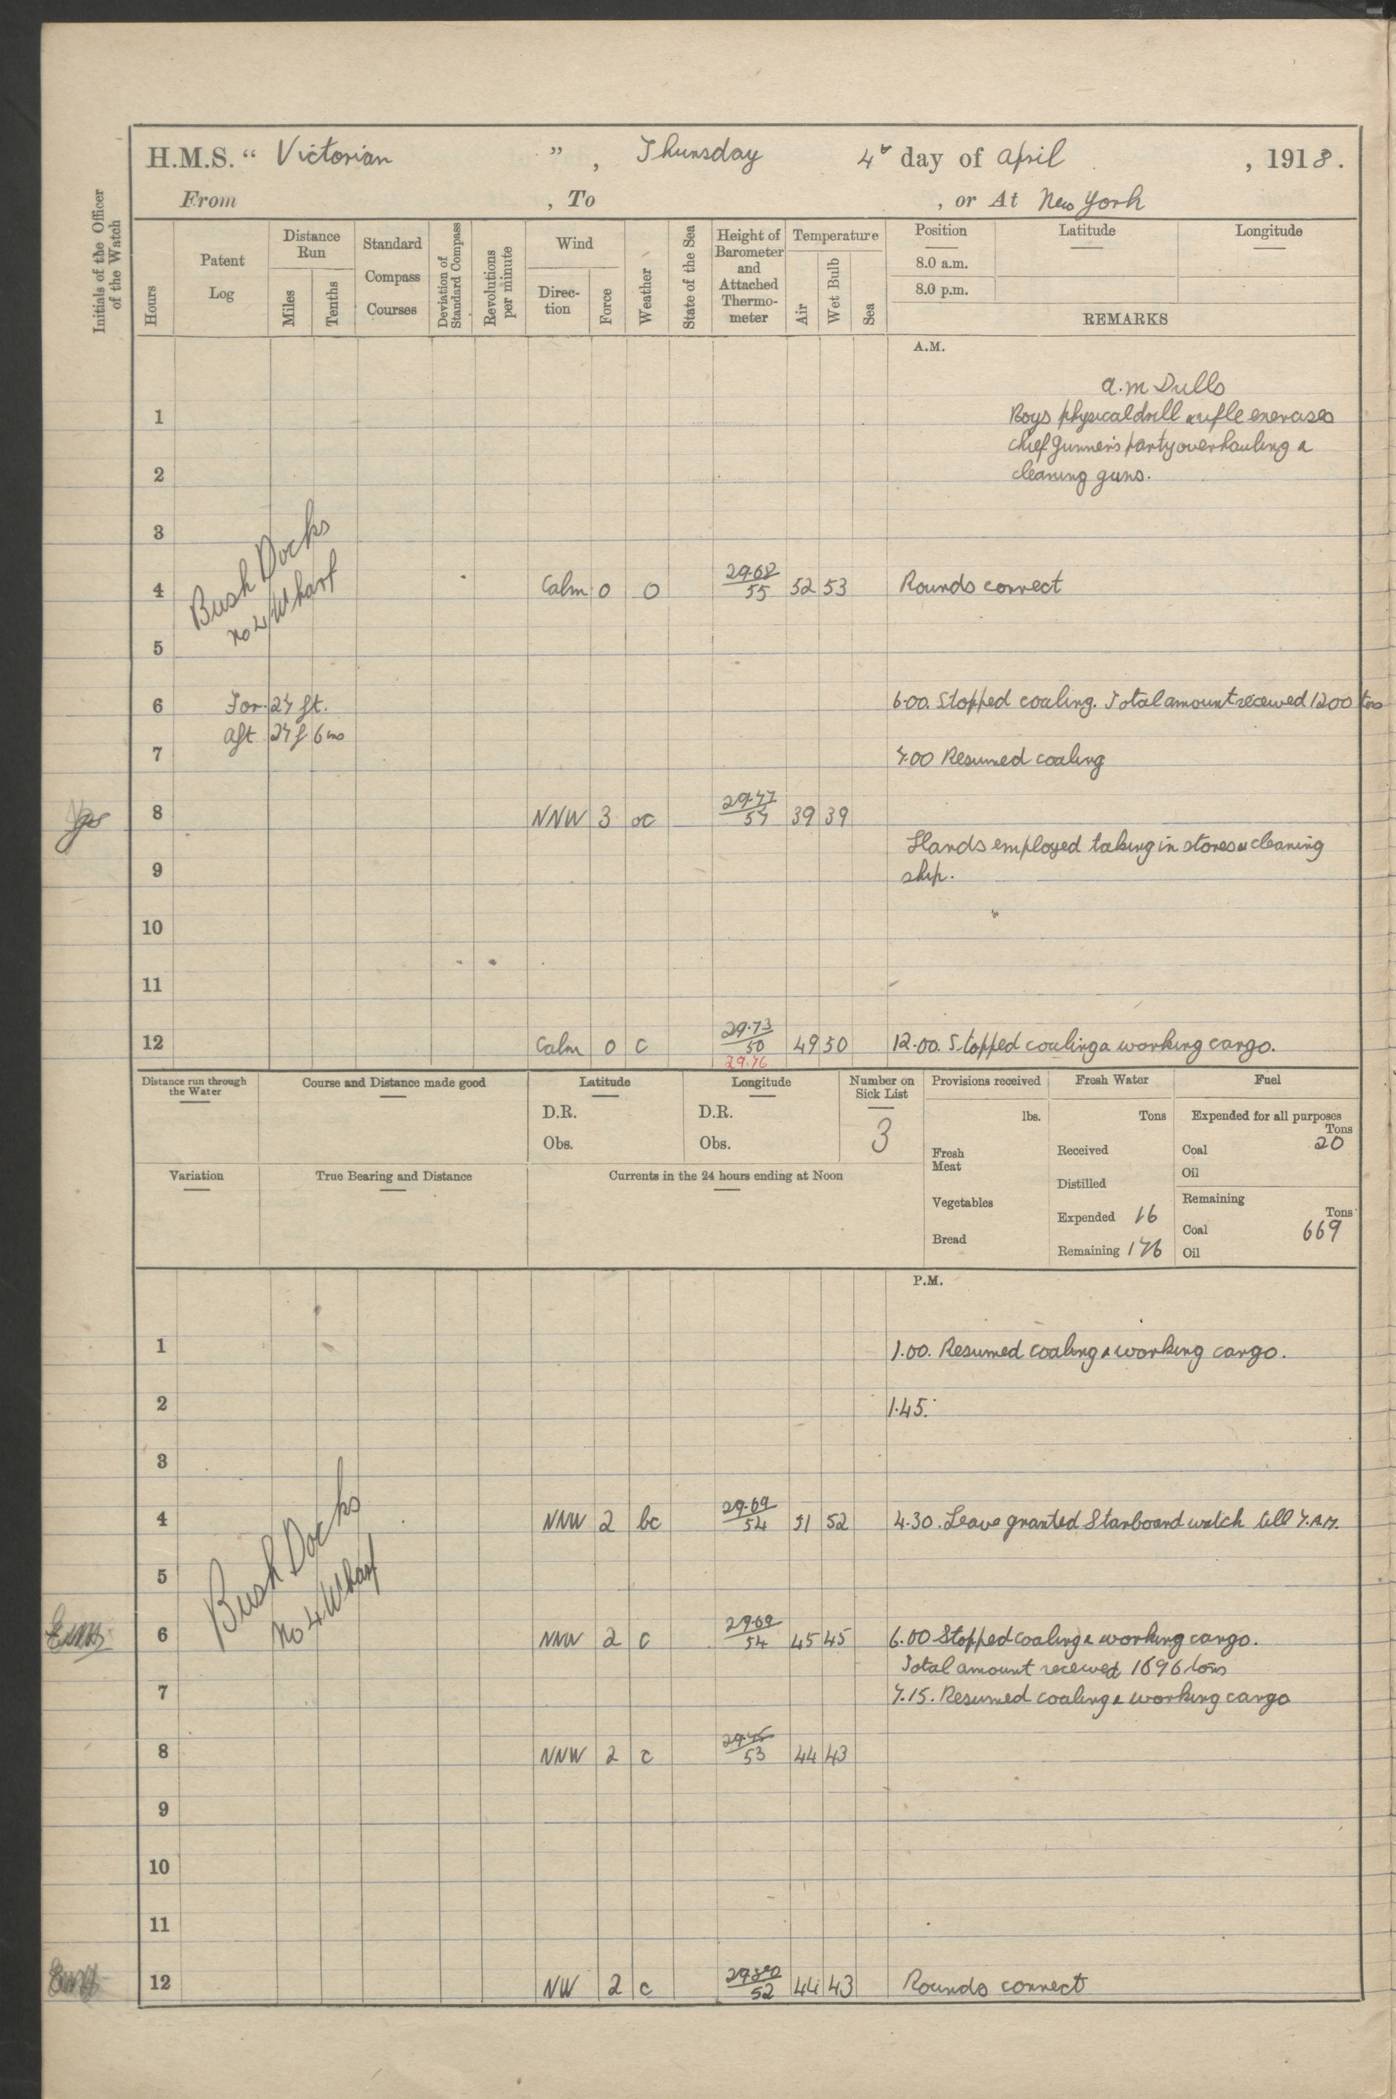 H.M.S. “ Victorian ” , Thursday 4th day of April , 1918.
From , To , or At New York
Initials of the Officer of the Watch
Hours
Patent Log
Distance Run
Miles
Tenths
Standard Compass Courses
Deviation of Standard Compass
Revolutions per minute
Wind
Direction
Force
Weather
State of the Sea
Height of Barometer and Attached Thermometer
Temperature
Air
Wet Bulb
Sea
Position Latitude Longitude
8.0 a.m.
8.0 p.m.
REMARKS
A.M.
a.m Drills
1 Boys physical drill & rifle exercises
chief Gunner's party overhauling &
2 cleaning guns.
3
Bush Docks
No 4 Wharf
4 Calm 0 O 29.68 55 52 53 Rounds correct
5
6 For. 27 ft. 6.00. Stopped coaling. Total amount received 1200 tons
Aft 27 f 6 ins
7 7.00 Resumed coaling
8 NNW 3 oc 29.77 57 39 39
Hands employed taking in stores & cleaning
9 ship.
10
11
12 Calm 0 C 29.73 50 49 50 12.00. Stopped coaling & working cargo.
29.76
Distance run through the Water
Course and Distance made good
Latitude
D.R.
Obs.
Longitude
D.R.
Obs.
Number on Sick List
3
Variation
True Bearing and Distance
Currents in the 24 hours ending at Noon
Provisions received
lbs.
Fresh Meat
Vegetables
Bread
Fresh Water
Tons
Received
Distilled
Expended 16
Remaining 176
Fuel
Expended for all purposes
Tons
Coal 20
Oil
Remaining
Tons
Coal 669
Oil
P.M.
1 1.00. Resumed coaling & working cargo.
2 1.45.
3
Bush Docks
No 4 Wharf
4 NNW 2 bc 29.69 54 51 52 4.30. Leave granted Starboard watch till 7.A.M.
5
6 NNW 2 C 29.69 54 45 45 6.00 Stopped coaling & working cargo.
Total amount received 1696 tons
7 7.15. Resumed coaling & working cargo
8 NNW 2 c 53 44 43
9
10
11
12 NW 2 c 52 44 43 Rounds correct